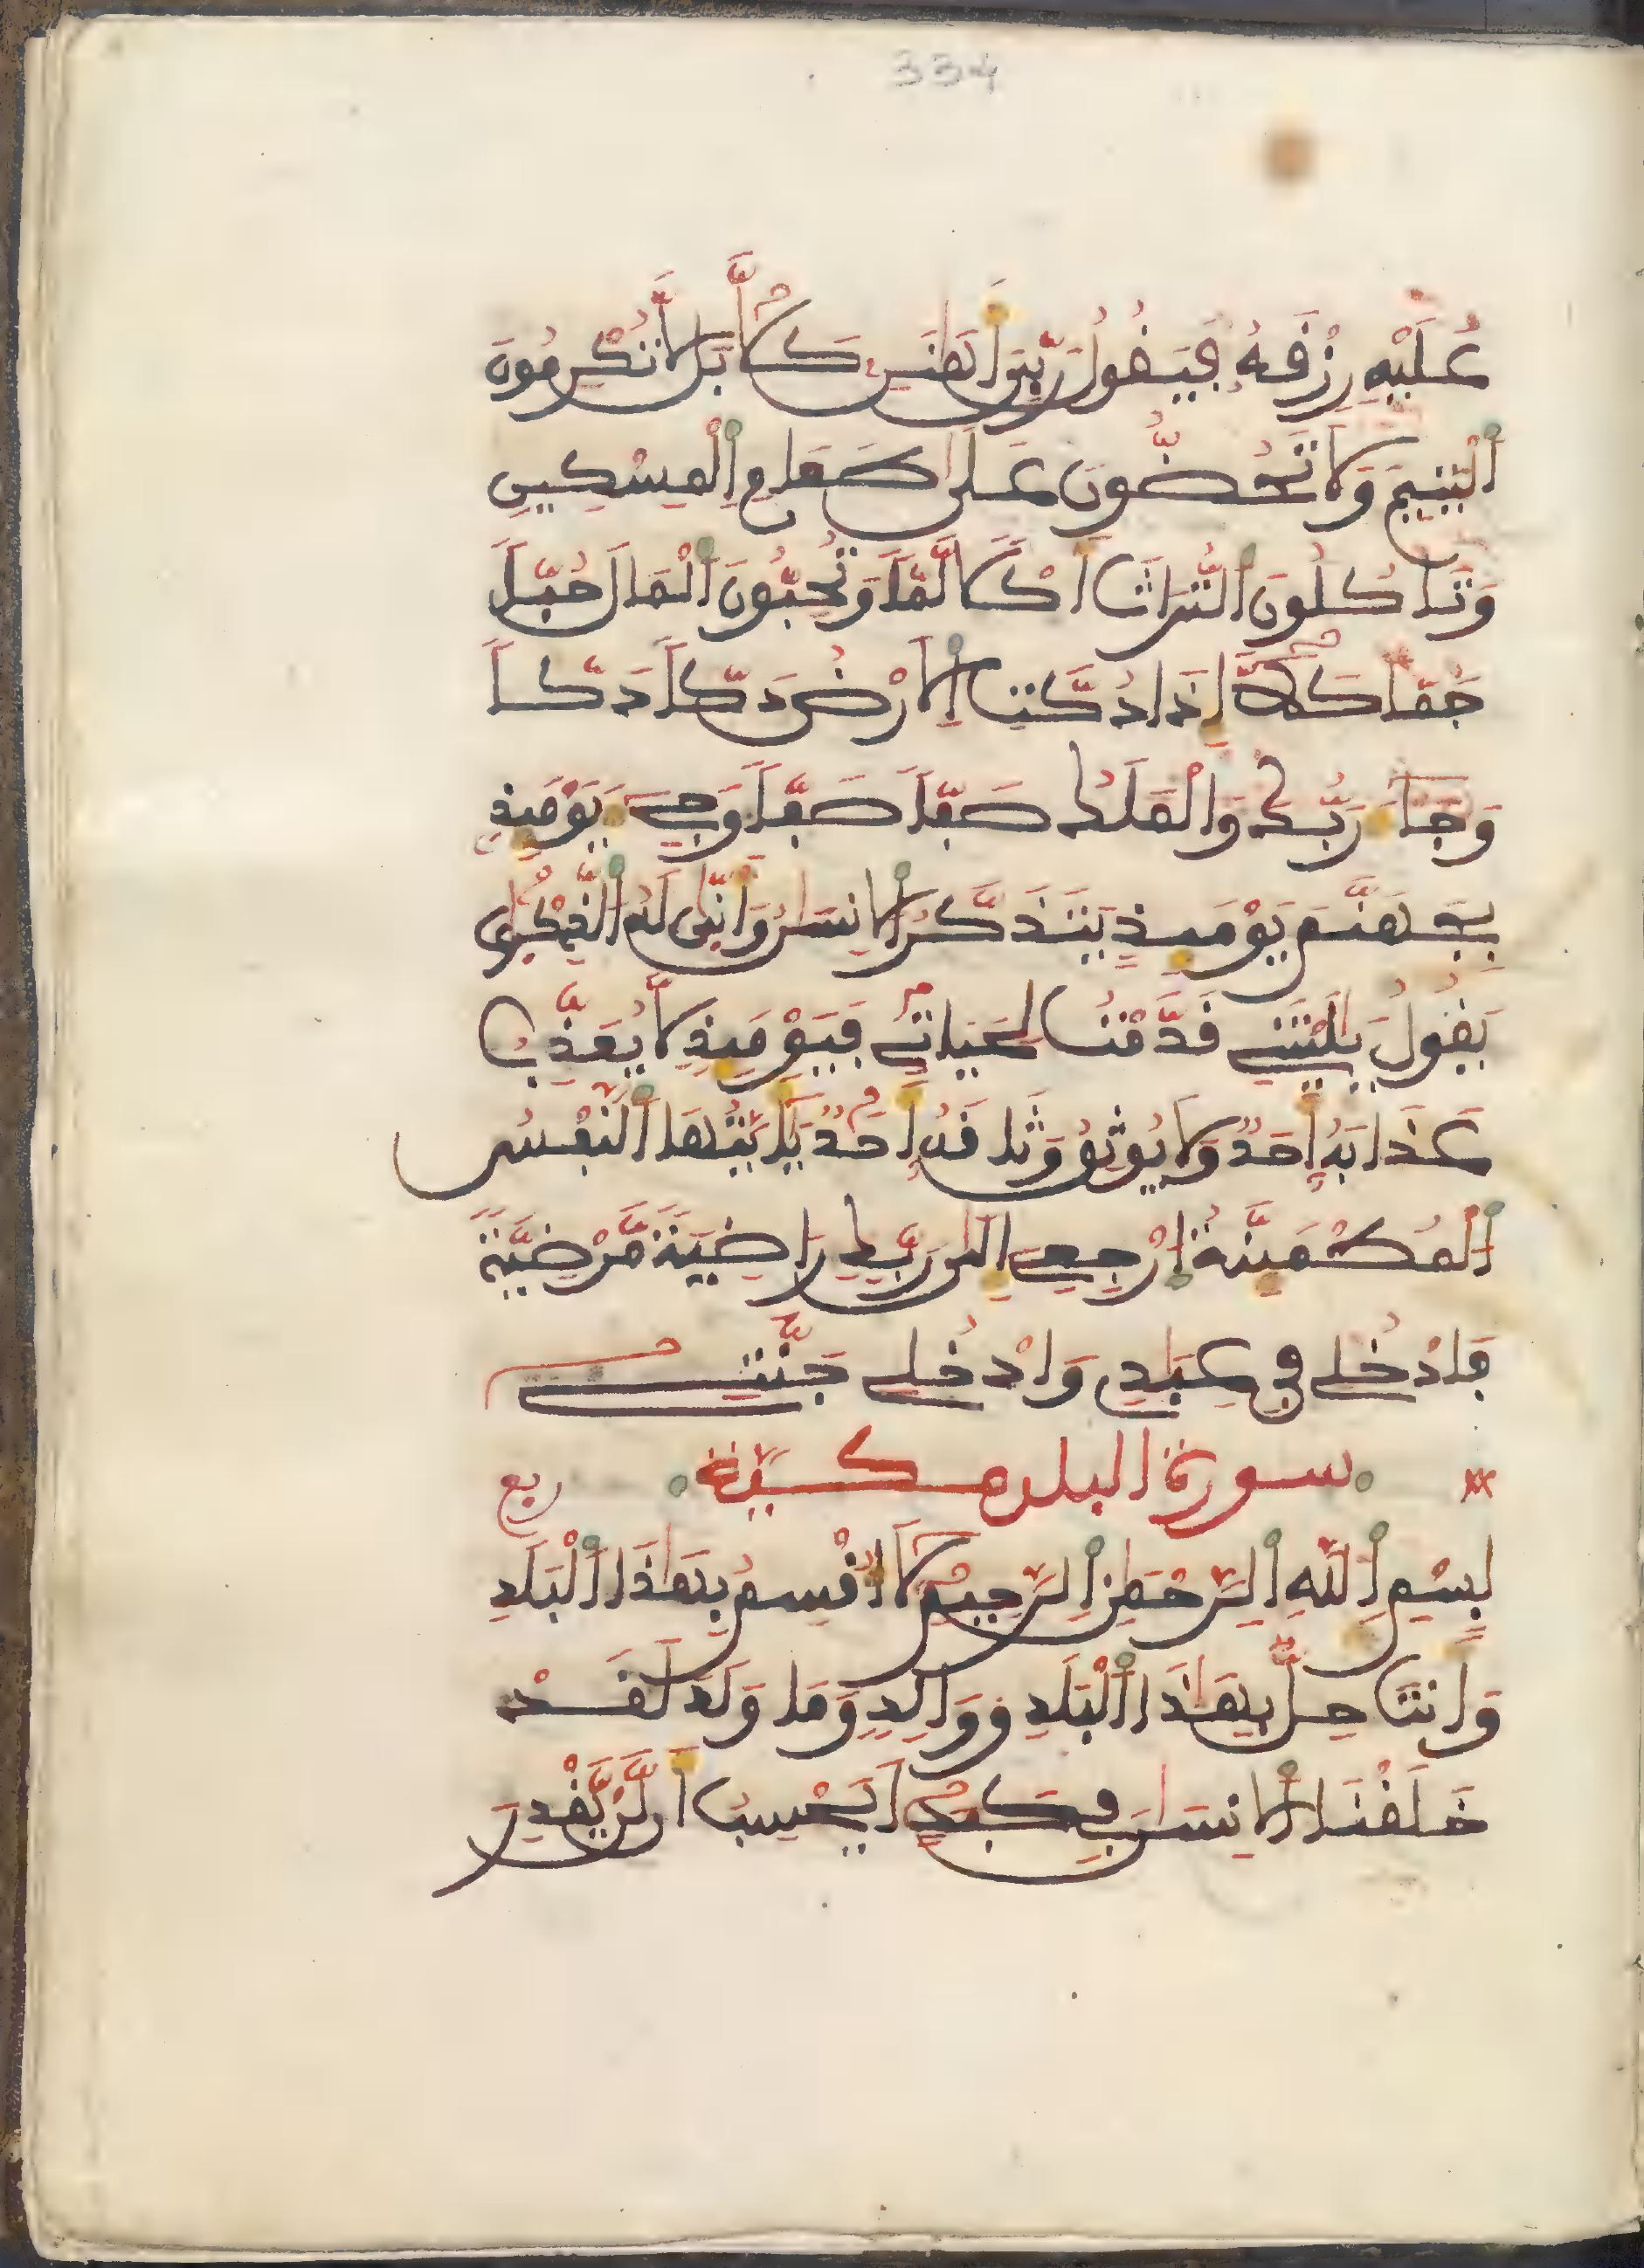 334
عَلَيْهِ رِزْقَهُ فَيَقُولُ رَبِّيَ أَهَٰنَنِۦ كَلَّا بَل لَّا تُكْرِمُونَ
اَلْيَتِيمَ وَلَا تَحُضُّونَ عَلَىٰ طَعَامِ اِلْمِسْكِينِ
وَتَاكُلُونَ اَلتُّرَاثَ أَكْلًا لَّمًّا وَتُحِبُّونَ اَلْمَالَ حُبًّا
جَمًّا كَلَّا إِذَا دُكَّتِ اِلَارْضُ دَكًّا دَكًّا
وَجَآءَ رَبُّكَ وَالْمَلَكُ صَفًّا صَفًّا وَجِےٓءَ يَوْمَئِذِۢ
بِجَهَنَّمَ يَوْمَئِذٍ يَتَذَكَّرُ اُلِانسَٰنُ وَأَنَّىٰ لَهُ اُلذِّكْرَىٰ
يَقُولُ يَٰلَيْتَنِے قَدَّمْتُ لِحَيَاتِے فَيَوْمَئِذٍ لَّا يُعَذِّبُ
عَذَابَهُۥٓ أَحَدٌ وَلَا يُوثِقُ وَثَاقَهُۥٓ أَحَدٌ يَٰٓأَيَّتُهَا اَلنَّفْسُ
اُلْمُطْمَئِنَّةُ اُ۪رْجِعِےٓ إِلَىٰ رَبِّكِ رَاضِيَةً مَّرْضِيَّةً
فَادْخُلِے فِے عِبَٰدِے وَادْخُلِے جَنَّتِے
سورة البلد مكية ربع
بِسْمِ اِللَّهِ اِلرَّحْمَٰنِ اِلرَّحِيمِ لَآ أُقْسِمُ بِهَٰذَا اَلْبَلَدِ
وَأَنتَ حِلُّۢ بِهَٰذَا اَلْبَلَدِ وَوَالِدٍ وَمَا وَلَدَ لَقَدْ
خَلَقْنَا اَلِانسَٰنَ فِے كَبَدٍ اَيَحْسِبُ أَن لَّنْ يَّقْدِرَ